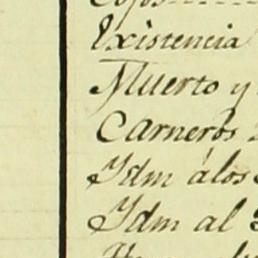 Existencia
Muerto y
Carneros
Ydm álos
Ydm al